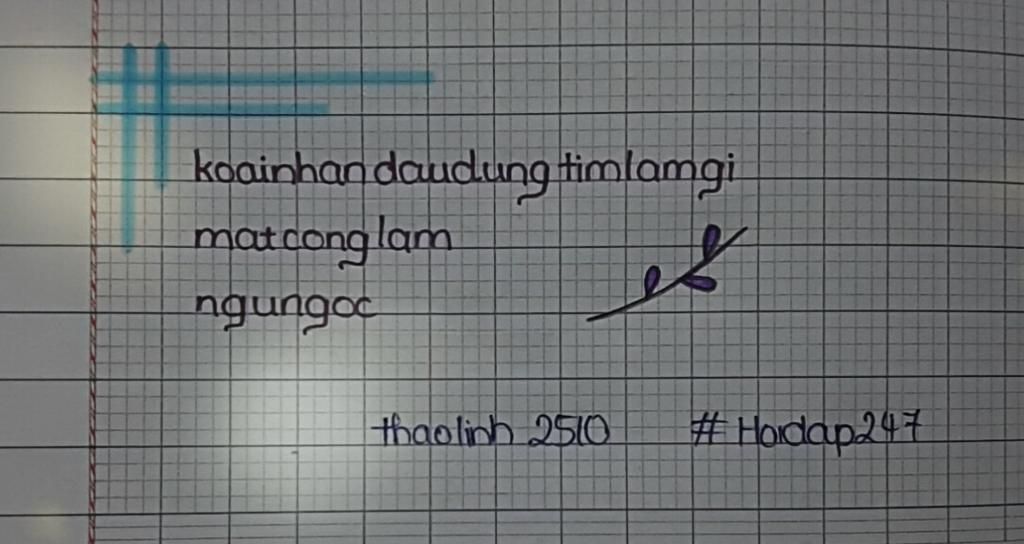 koainhandaudungtimlamgi
matconglam
ngungoc
thaolinh 2510 # Hoidap247